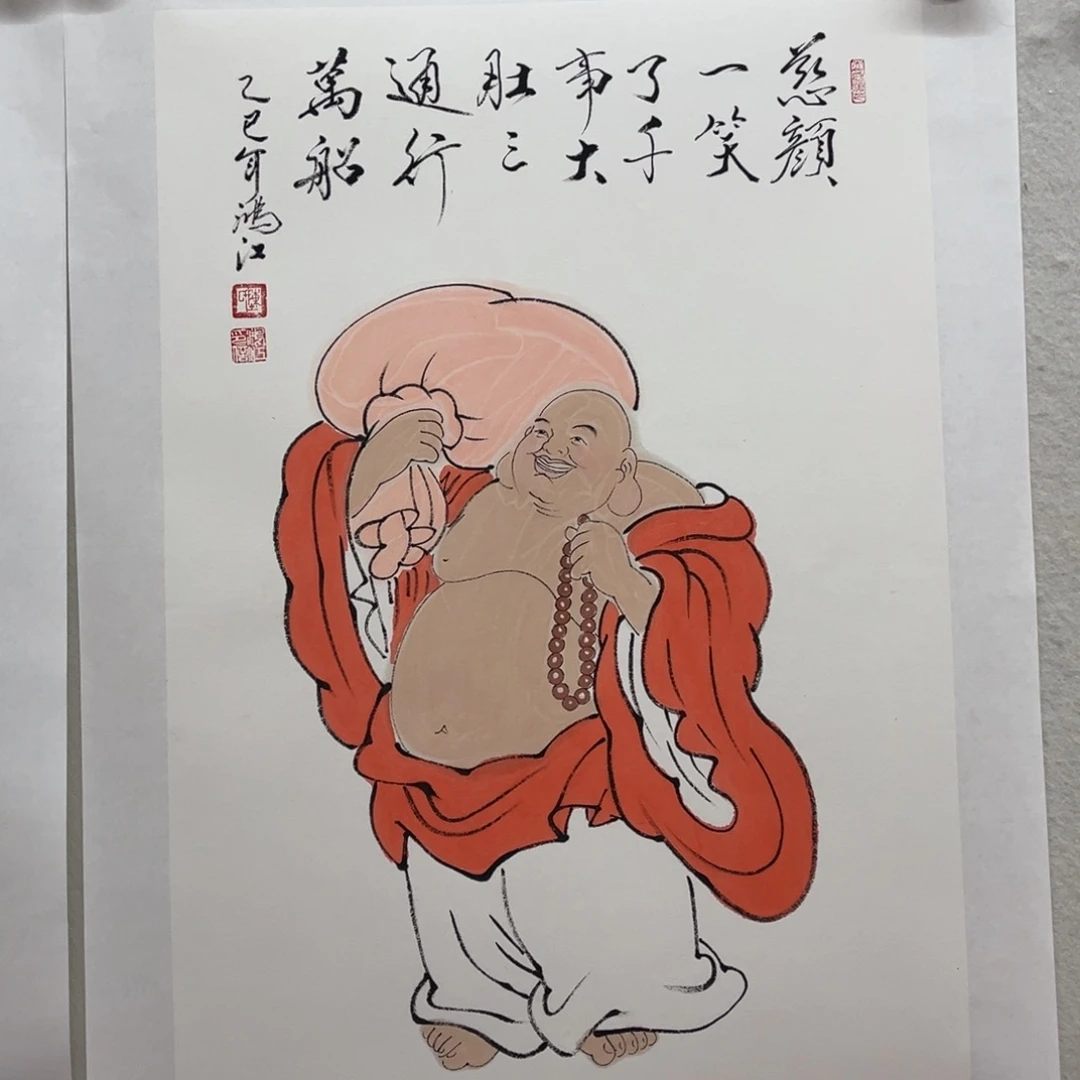 慈顏
一笑
了千
事大
肚三
通行
萬船
乙巳年鴻江